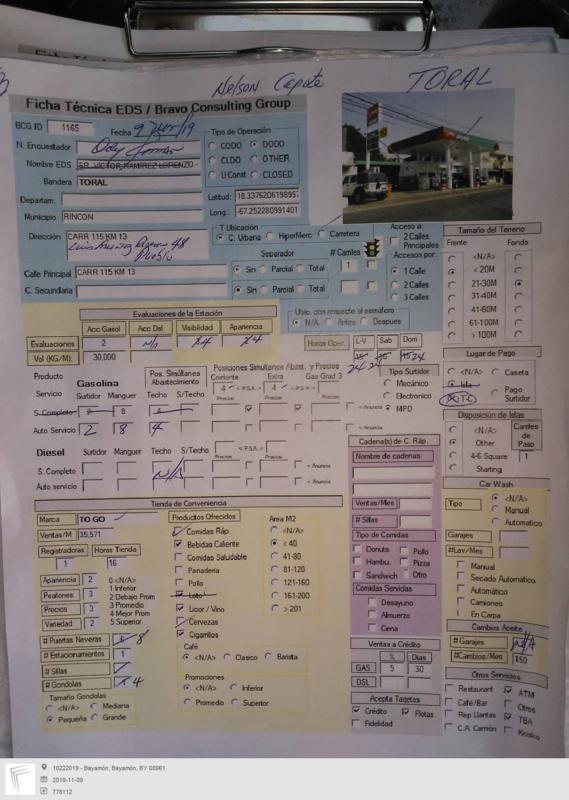 Nelson Capote TORAL
Ficha Técnica EDS / Bravo Consulting Group
BCG ID 1165 Fecha
N. Encuestador
Nombre EDS SR. VICTOR RAMIREZ LORENZO -
Bandera TORAL
Departam.
Municipio RINCON
Tipo de Operación
CODO DODO
CLDO OTHER
U Const CLOSED
Latitud: 18.3376206198957
Long.: -67.252280991401
Dirección CARR 115 KM 13
Calle Principal CARR 115 KM 13
C. Secundaria
T Ubicación
C. Urbana HiperMerc Carretera
Separador # Carriles
Sin Parcial Total 1
Sin Parcial Total
Acceso a:
2 Calles Principales
Accesos por:
1 Calle
2 Calles
3 Calles
Tamaño del Terreno
Frente Fondo
<N/A>
< 20M
21-30M
31-40M
41-60M
61-100M
> 100M
Evaluaciones de la Estación
Acc Gasol Acc Dsl Visibilidad Apariencia
Evaluaciones 2 N/A 4 4
Vol (KG/M): 30,000
Ubic. con respecto al semáforo
N/A Antes Despues
Horas Oper. L-V Sab Dom
24 24 24
Lugar de Pago
<N/A> Caseta
Isla Pago Surtidor
Tipo Surtidor
Mecánico
Electronico
MPD
Producto Gasolina Pos. Simultánea Abastecimiento Posiciones Simultaneas Abast. y Precios
Servicio Surtidor Manguer Techo S/Techo Corriente Extra Gas Grad 3
S. Completo 2 8 4
Auto Servicio 2 8 4
Diesel Surtidor Manguer Techo S/Techo
S. Completo N/A
Auto servicio
Disposición de Islas
<N/A>
Other
4-6 Square
Starting
Carriles de Paso
1
Cadena(s) de C. Ráp.
Nombre de cadenas:
Ventas/Mes
# Sillas
Tipo de Comidas
Donuts Pollo
Hambu. Pizza
Sandwich Otro
Comidas Servidas
Desayuno
Almuerzo
Cena
Car Wash
Tipo <N/A>
Manual
Automatico
Garajes
#Lav/Mes
Manual
Secado Automatico
Automático
Camiones
En Carpa
Cambios Aceite
# Garajes N/A
#Cambios/Mes 150
Tienda de Conveniencia
Marca TO GO
Ventas/M 35,571
Registradoras Horas Tienda
1 16
Apariencia 2
Peatones 3
Precios 3
Variedad 2
0 <N/A>
1 Inferior
2 Debajo Prom
3 Promedio
4 Mejor Prom
5 Superior
# Puertas Neveras 6 8
# Estacionamientos 1
# Sillas
# Gondolas 4
Tamaño Gondolas
<N/A> Mediana
Pequeña Grande
Productos Ofrecidos
Comidas Ráp.
Bebidas Caliente
Comidas Saludable
Panaderia
Pollo
Loto
Licor / Vino
Cervezas
Cigarrillos
Area M2
<N/A>
< 40
41-80
81-120
121-160
161-200
> 201
Café
<N/A> Clasico Barista
Promociones
<N/A> Inferior
Promedio Superior
Ventas a Crédito
% Dias
GAS 5 30
DSL
Acepta Tarjetas
Crédito Flotas
Fidelidad
Otros Servicios
Restaurant ATM
Café/Bar Otros
Rep Llantas TBA
C.A. Camión Kiosko
10222019 - Bayamón, Bayamón, BY 00961
2019-11-09
778112